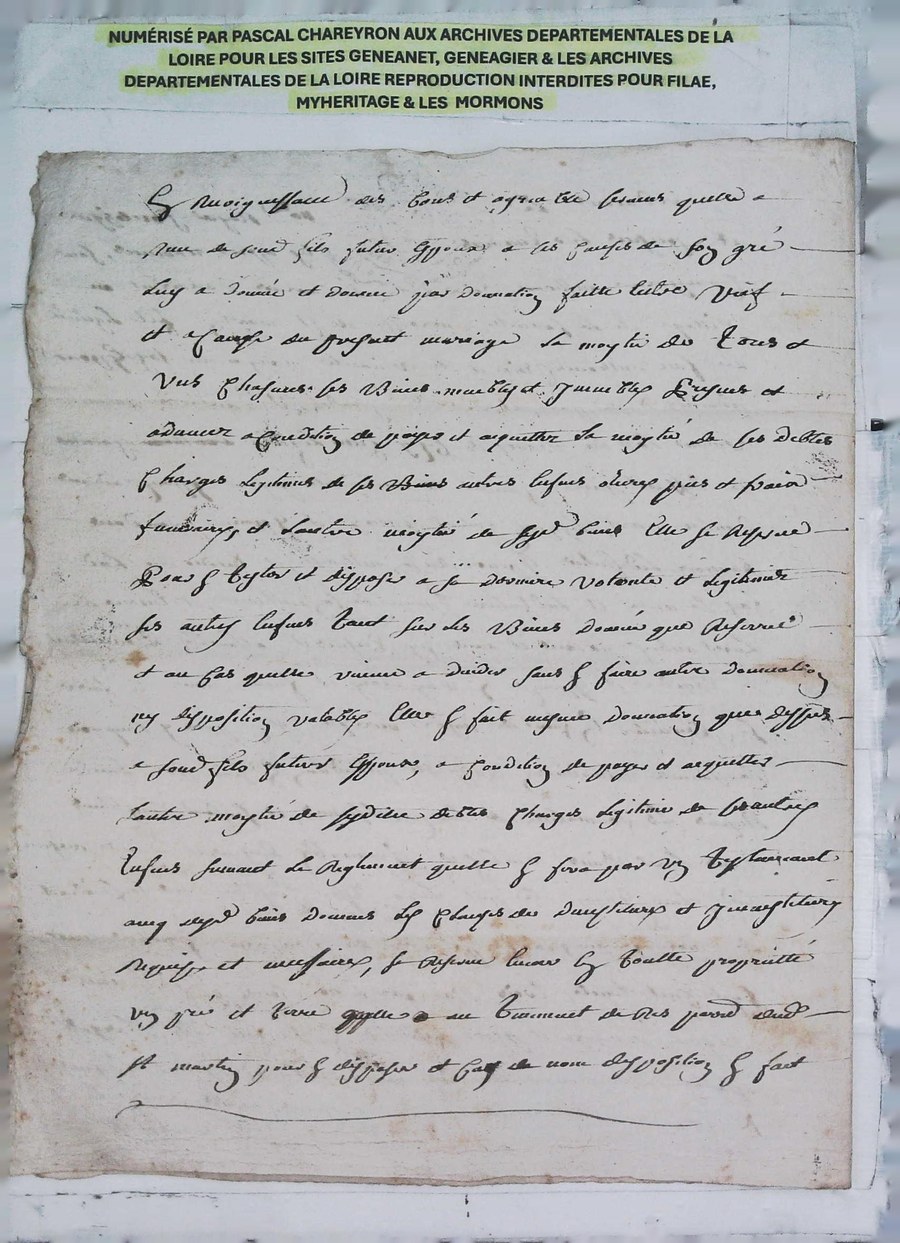 NUMÉRISÉ PAR PASCAL CHAREYRON AUX ARCHIVES DEPARTEMENTALES DE LA
LOIRE POUR LES SITES GENEANET, GENEAGIER & LES ARCHIVES
DEPARTEMENTALES DE LA LOIRE REPRODUCTION INTERDITES POUR FILAE,
MYHERITAGE & LES MORMONS
des bons et agreable services quelle a
de son fils futur espoux a ces causes de son gré
luy a donnée et donne par donnation faitte entre vif
et a cause du present mariage la moytié de tous et
uns chascuns ses biens meubles et immeubles presens et
advenir a condition de payer et acquitter la moytié de ses debtes
charges legitimes de ses autres enfens pies et frais
funeraires, et lautre moytié de biens elle se reserve
pour y tester et disposer a sa derniere volonté et legitimer
ses autres enfens tant sur les biens donnés que reservés
et au cas quelle vienne a sans y faire autre donnation
ny disposition valable elle y fait mesme donnation que dessus
a fils futur espoux, a condition de payer et acquitter
lautre moytié de debtes charges legitime de ses autres
enfens suivant le reglement quelle y fera par un testament
avec biens donnés les clauses de et
requises et necessaires, se reserve encor en toutte propriété
un pré et terre au de
st martin pour y disposer et cas de non disposition y fait